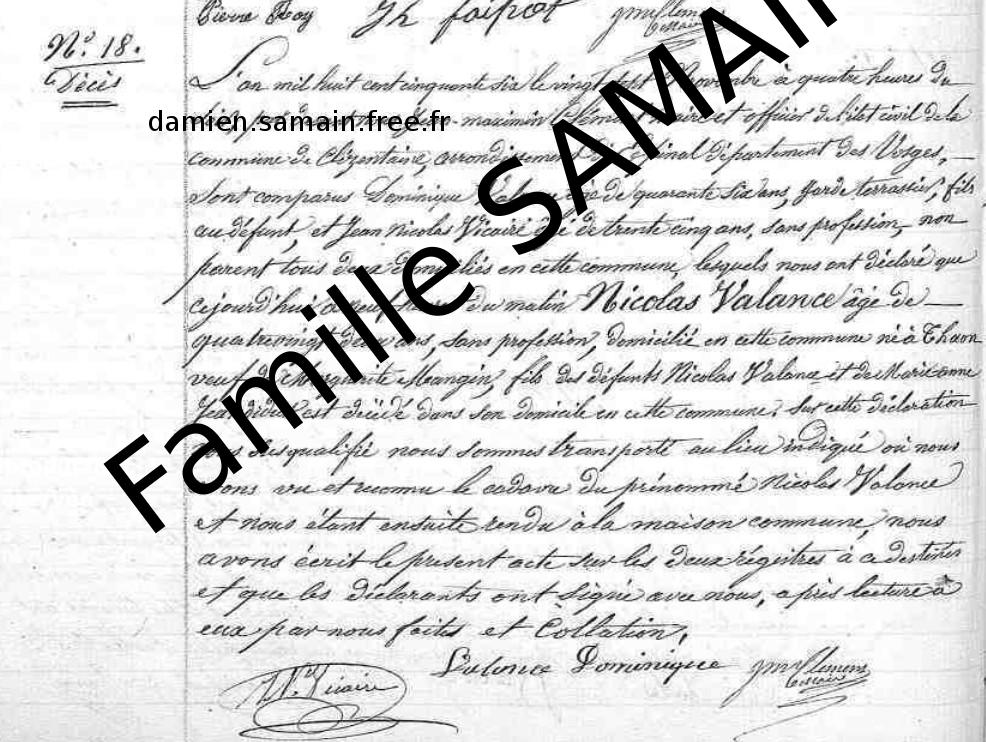 Pierre Roy
Nº 18.
Décès
L'an mil huit cent cinquante six le vingt sept Novembre à quatre heures du
maximin Clément maire et officier de l'état civil de la
damien.samain.free.fr
commune de Clézentaine, arrondissement d'Epinal département des Vosges,
sont comparus Dominique Valance âgé de quarante six ans, garde terrassier, fils
au défunt, et Jean Nicolas Vicaire âgé de trente cinq ans, sans profession, non
parent tous deux domiciliés en cette commune, lesquels nous ont déclaré que
cejourd'hui à neuf heures du matin Nicolas Valance âgé de
quatrevingt deux ans, sans profession, domicilié en cette commune né à Thaon
veuf de Marguerite Mangin, fils des défunts Nicolas Valance et de Marie anne
est décédé dans son domicile en cette commune. Sur cette déclaration
nous susqualifié nous sommes transporté au lieu indiqué où nous
avons vu et reconnu le cadavre du prénommé Nicolas Valance
et nous étant ensuite rendu à la maison commune, nous
avons écrit le present acte sur les deux régistres à ce destinés
et que les déclarants ont signé avec nous, après lecture à
eux par nous faites et Collation.
Vicaire
Valance Dominique
Famille SAMAIN